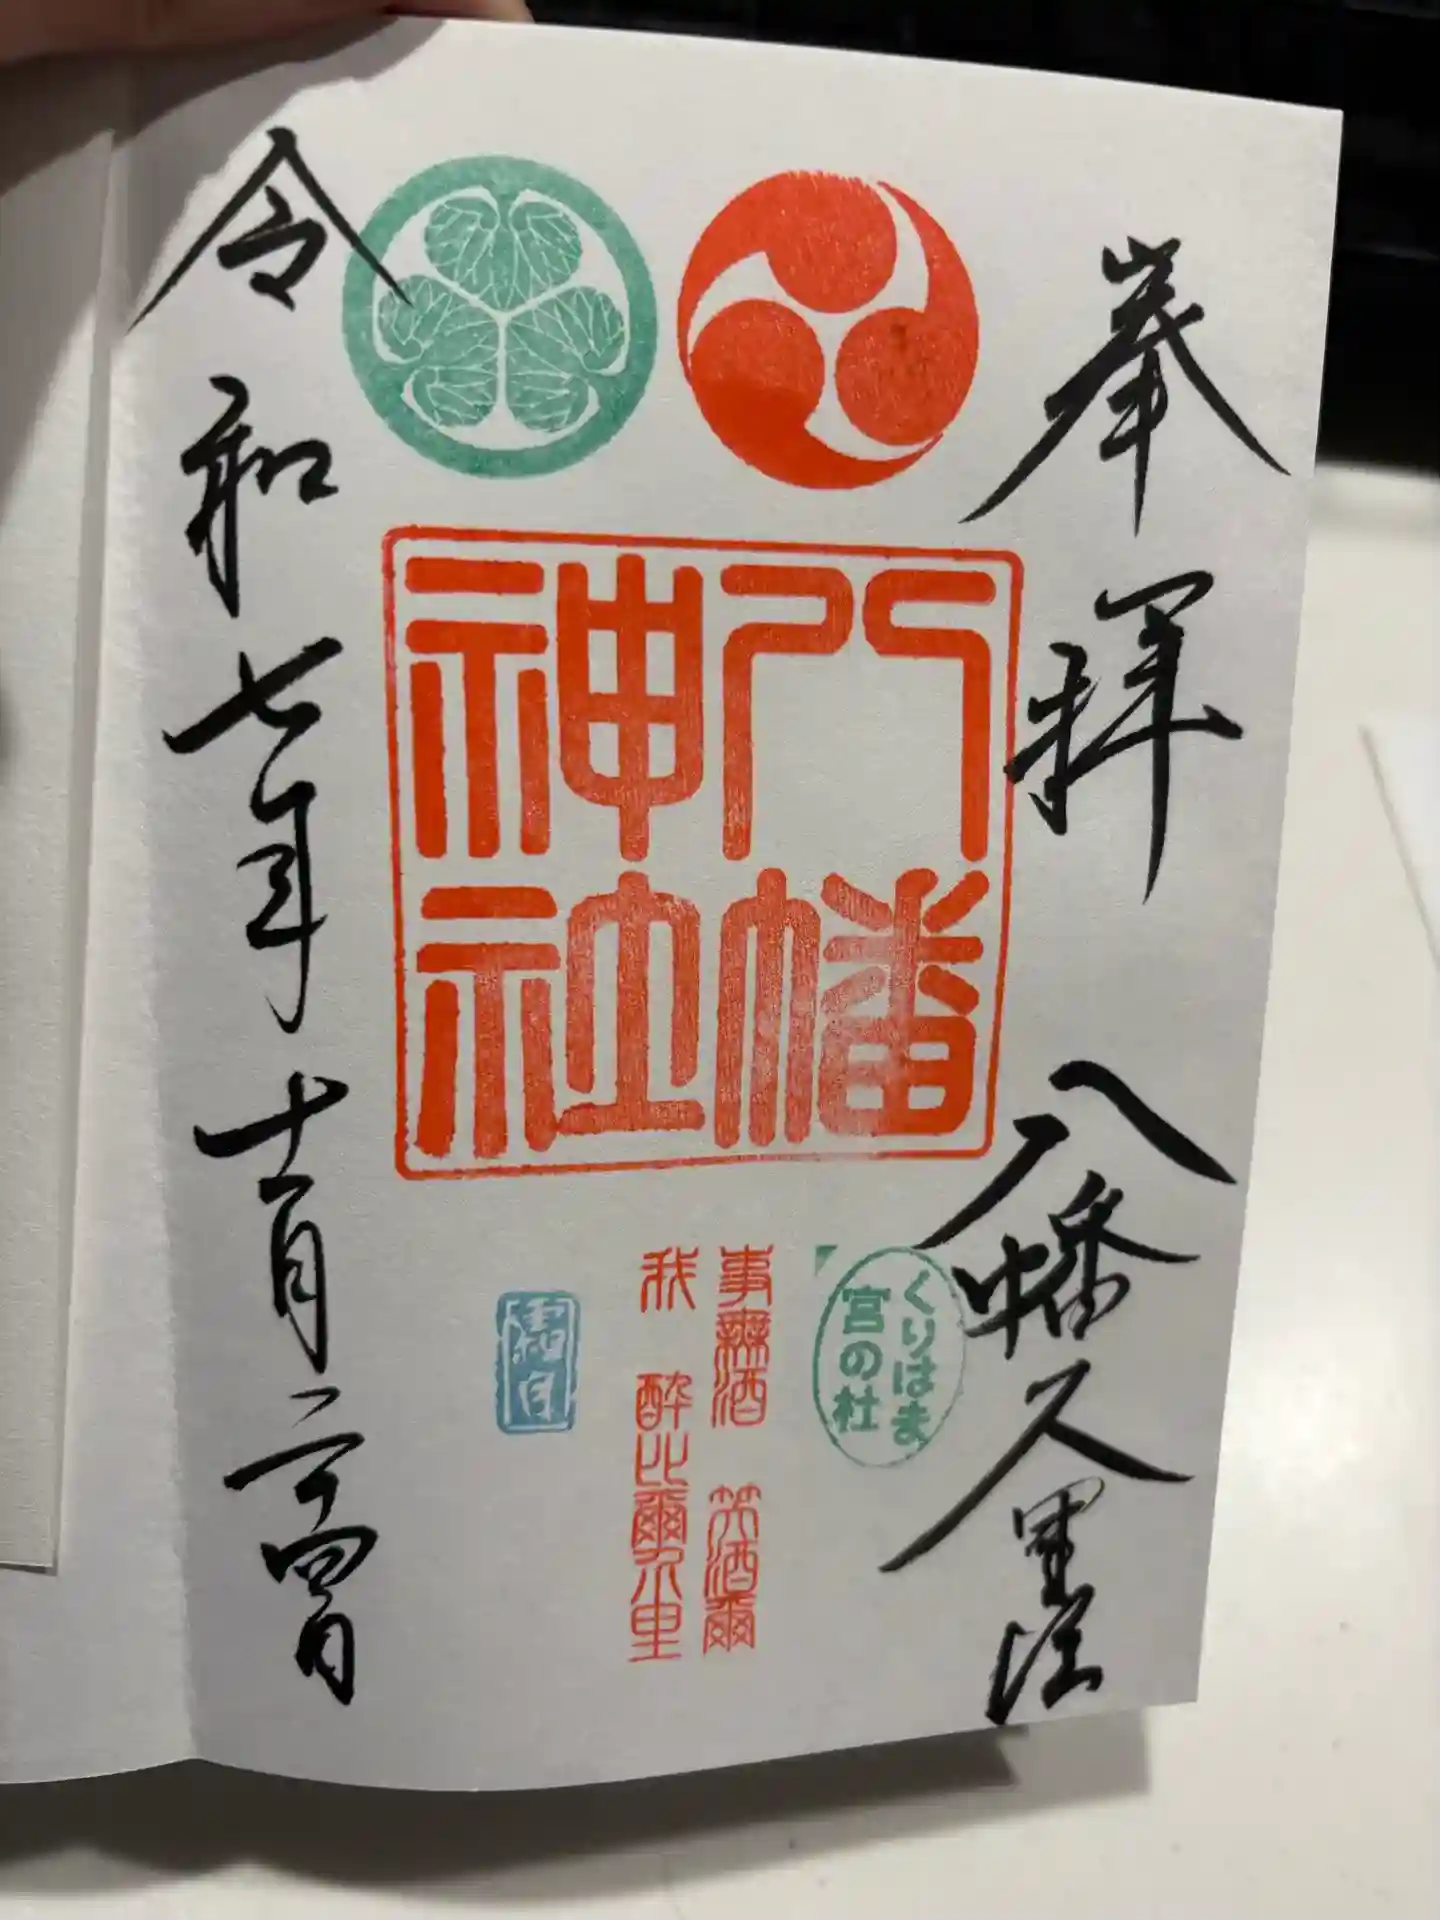 奉拝
八幡久里浜
八幡
神社
くりはま
宮の杜
事無酒 笑酒爾
我 酔比爾久里
霜月
令和七年十一月二十四日